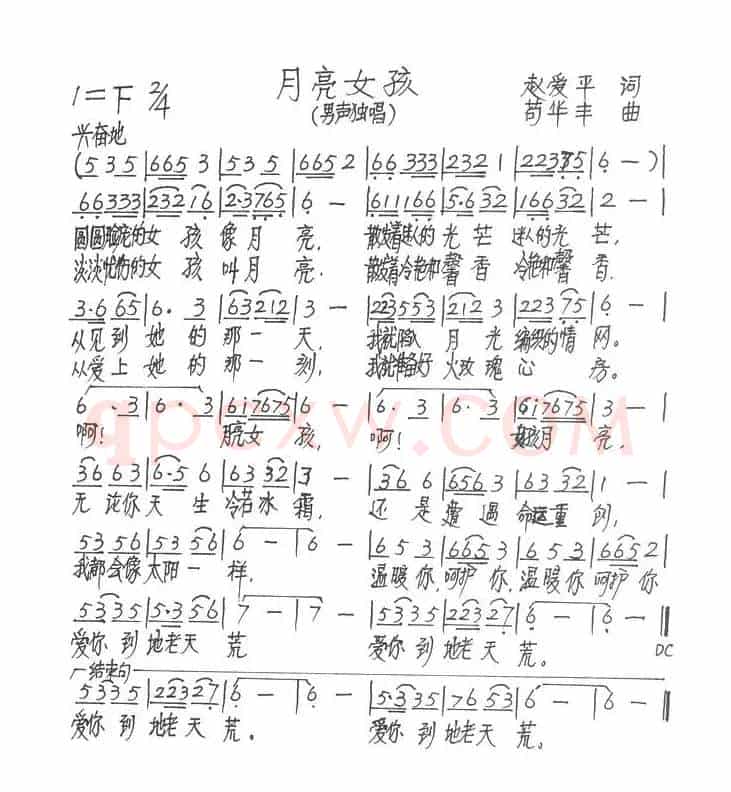 月亮女孩
(男声独唱)
1=F 2/4
赵爱平 词
苟华丰 曲
兴奋地
(5 3 5 | 6 6 5 3 | 5 3 5 | 6 6 5 2 | 6 6 3 3 3 | 2 3 2 1 | 2 2 3 7 5 | 6 — ) |
6 6 3 3 3 | 2 3 2 1 6 | 2· 3 7 6 5 | 6 — | 6 1 1 1 6 6 | 5· 6 3 2 | 1 6 6 3 2 | 2 — |
圆圆脸庞的女孩像月亮, 散发着迷人的光芒 迷人的光芒,
淡淡忧伤的女孩叫月亮. 散发着冷艳和馨香 冷艳和馨香.
3· 6 6 5 | 6· 3 | 6 3 2 1 2 | 3 — | 2 2 3 5 5 3 | 2 1 2 3 | 2 2 3 7 5 | 6 — |
从见到她的那一天, 我就陷入月光编织的情网。
从爱上她的那一刻, 我就准备好火玫瑰心房。
6 · 3 | 6 · 3 | 6 1 7 6 7 5 | 6 — | 6 · 3 | 6 · 3 | 6 1 7 6 7 3 | 3 — |
啊! 月亮女孩, 啊! 女孩月亮.
3 6 6 3 | 6· 5 6 | 6 3 3 2 | 3 — | 3 6 6 | 6 5 6 3 | 6 3 3 2 | 1 — |
无论你天生冷若冰霜, 还是遭遇命运重创,
5 3 5 6 | 5 3 5 6 | 6 — | 6 — | 6 5 3 | 6 6 5 3 | 6 5 3 | 6 6 5 2 |
我都会像太阳一样, 温暖你,呵护你,温暖你呵护你
5 3 3 5 | 5· 3 5 6 | 7 — | 7 — | 5 3 3 5 | 2 2 3 2 7 | 6 — | 6 — ‖
爱你到地老天荒 爱你到地老天荒。 DC
结束句
5 3 3 5 | 2 2 3 2 7 | 6 — | 6 — | 5· 3 3 5 | 7 6 5 3 | 6 — | 6 — ‖
爱你到地老天荒。 爱你到地老天荒。
qpcxw.com